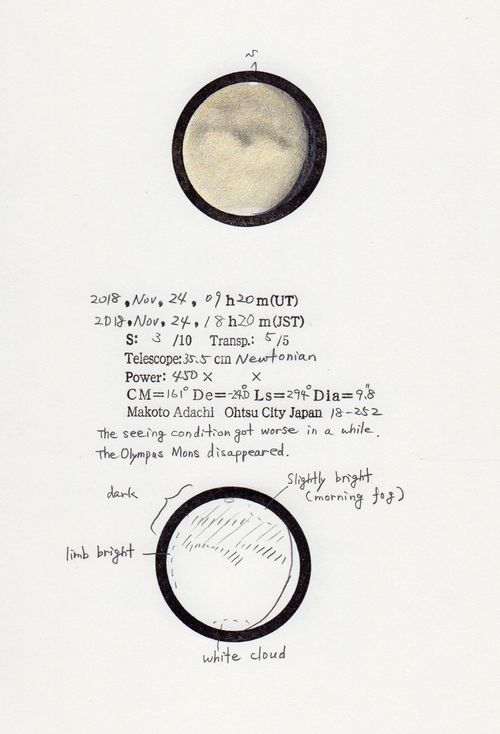 S
2018, Nov, 24, 09h20m(UT)
2018, Nov, 24, 18h20m(JST)
S: 3 /10 Transp.: 5/5
Telescope: 35.5 cm Newtonian
Power: 450 × ×
CM=161° De=-24.0 Ls=294° Dia=9."8
Makoto Adachi Ohtsu City Japan 18-252
The seeing condition got worse in a while.
The Olympus Mons disappeared.
Slightly bright
dark
(morning fog)
limb bright
white cloud